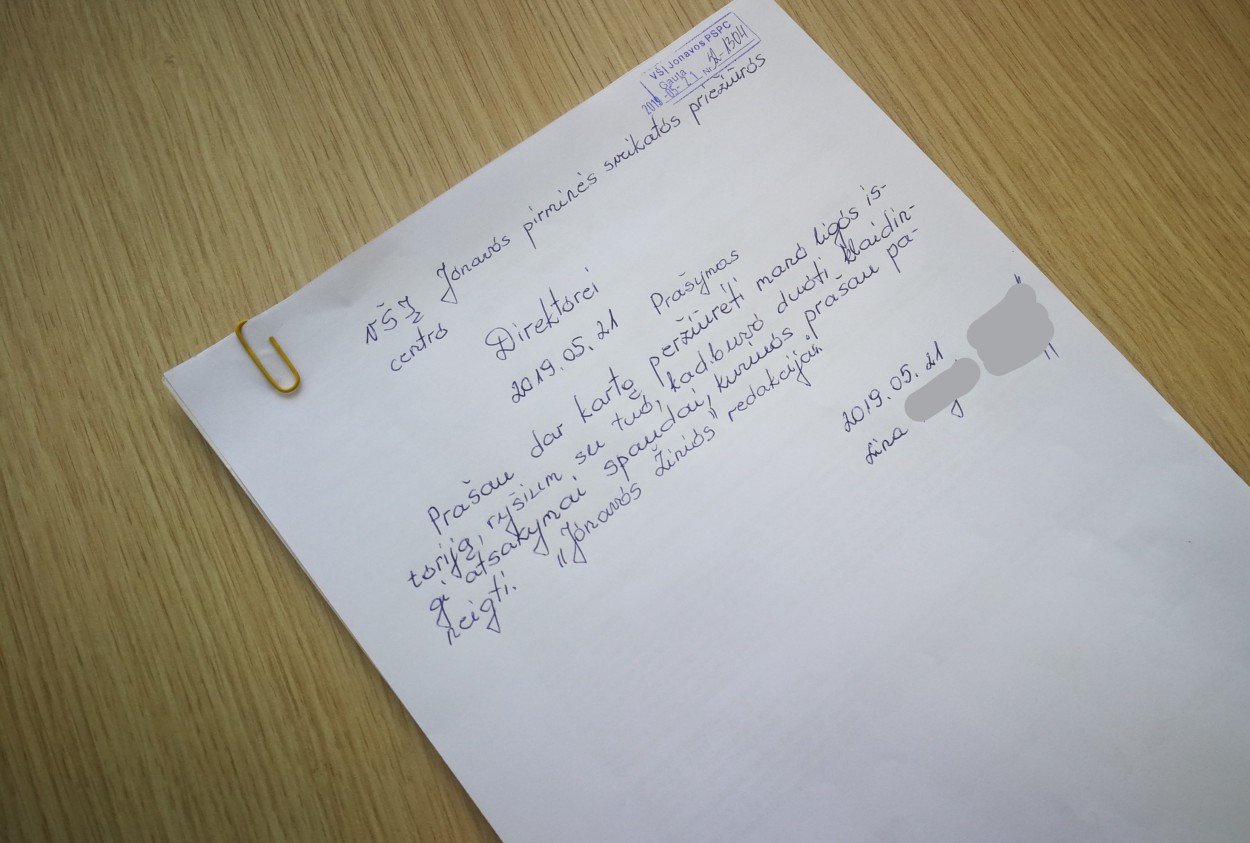 VŠĮ Jonavos PSPC
Gauta
2019-05-21 Nr. 
VŠĮ Jonavos pirminės sveikatos priežiūros
centro
Direktorei
2019.05.21 Prašymas
Prašau dar kartą peržiūrėti mano ligos is-
toriją, ryšium su tuo, kad buvo duoti klaidin-
gi atsakymai spaudai, kuriuos prašau pa-
neigti. "Jonavos žinios" redakcijai.
2019.05.21
Lina